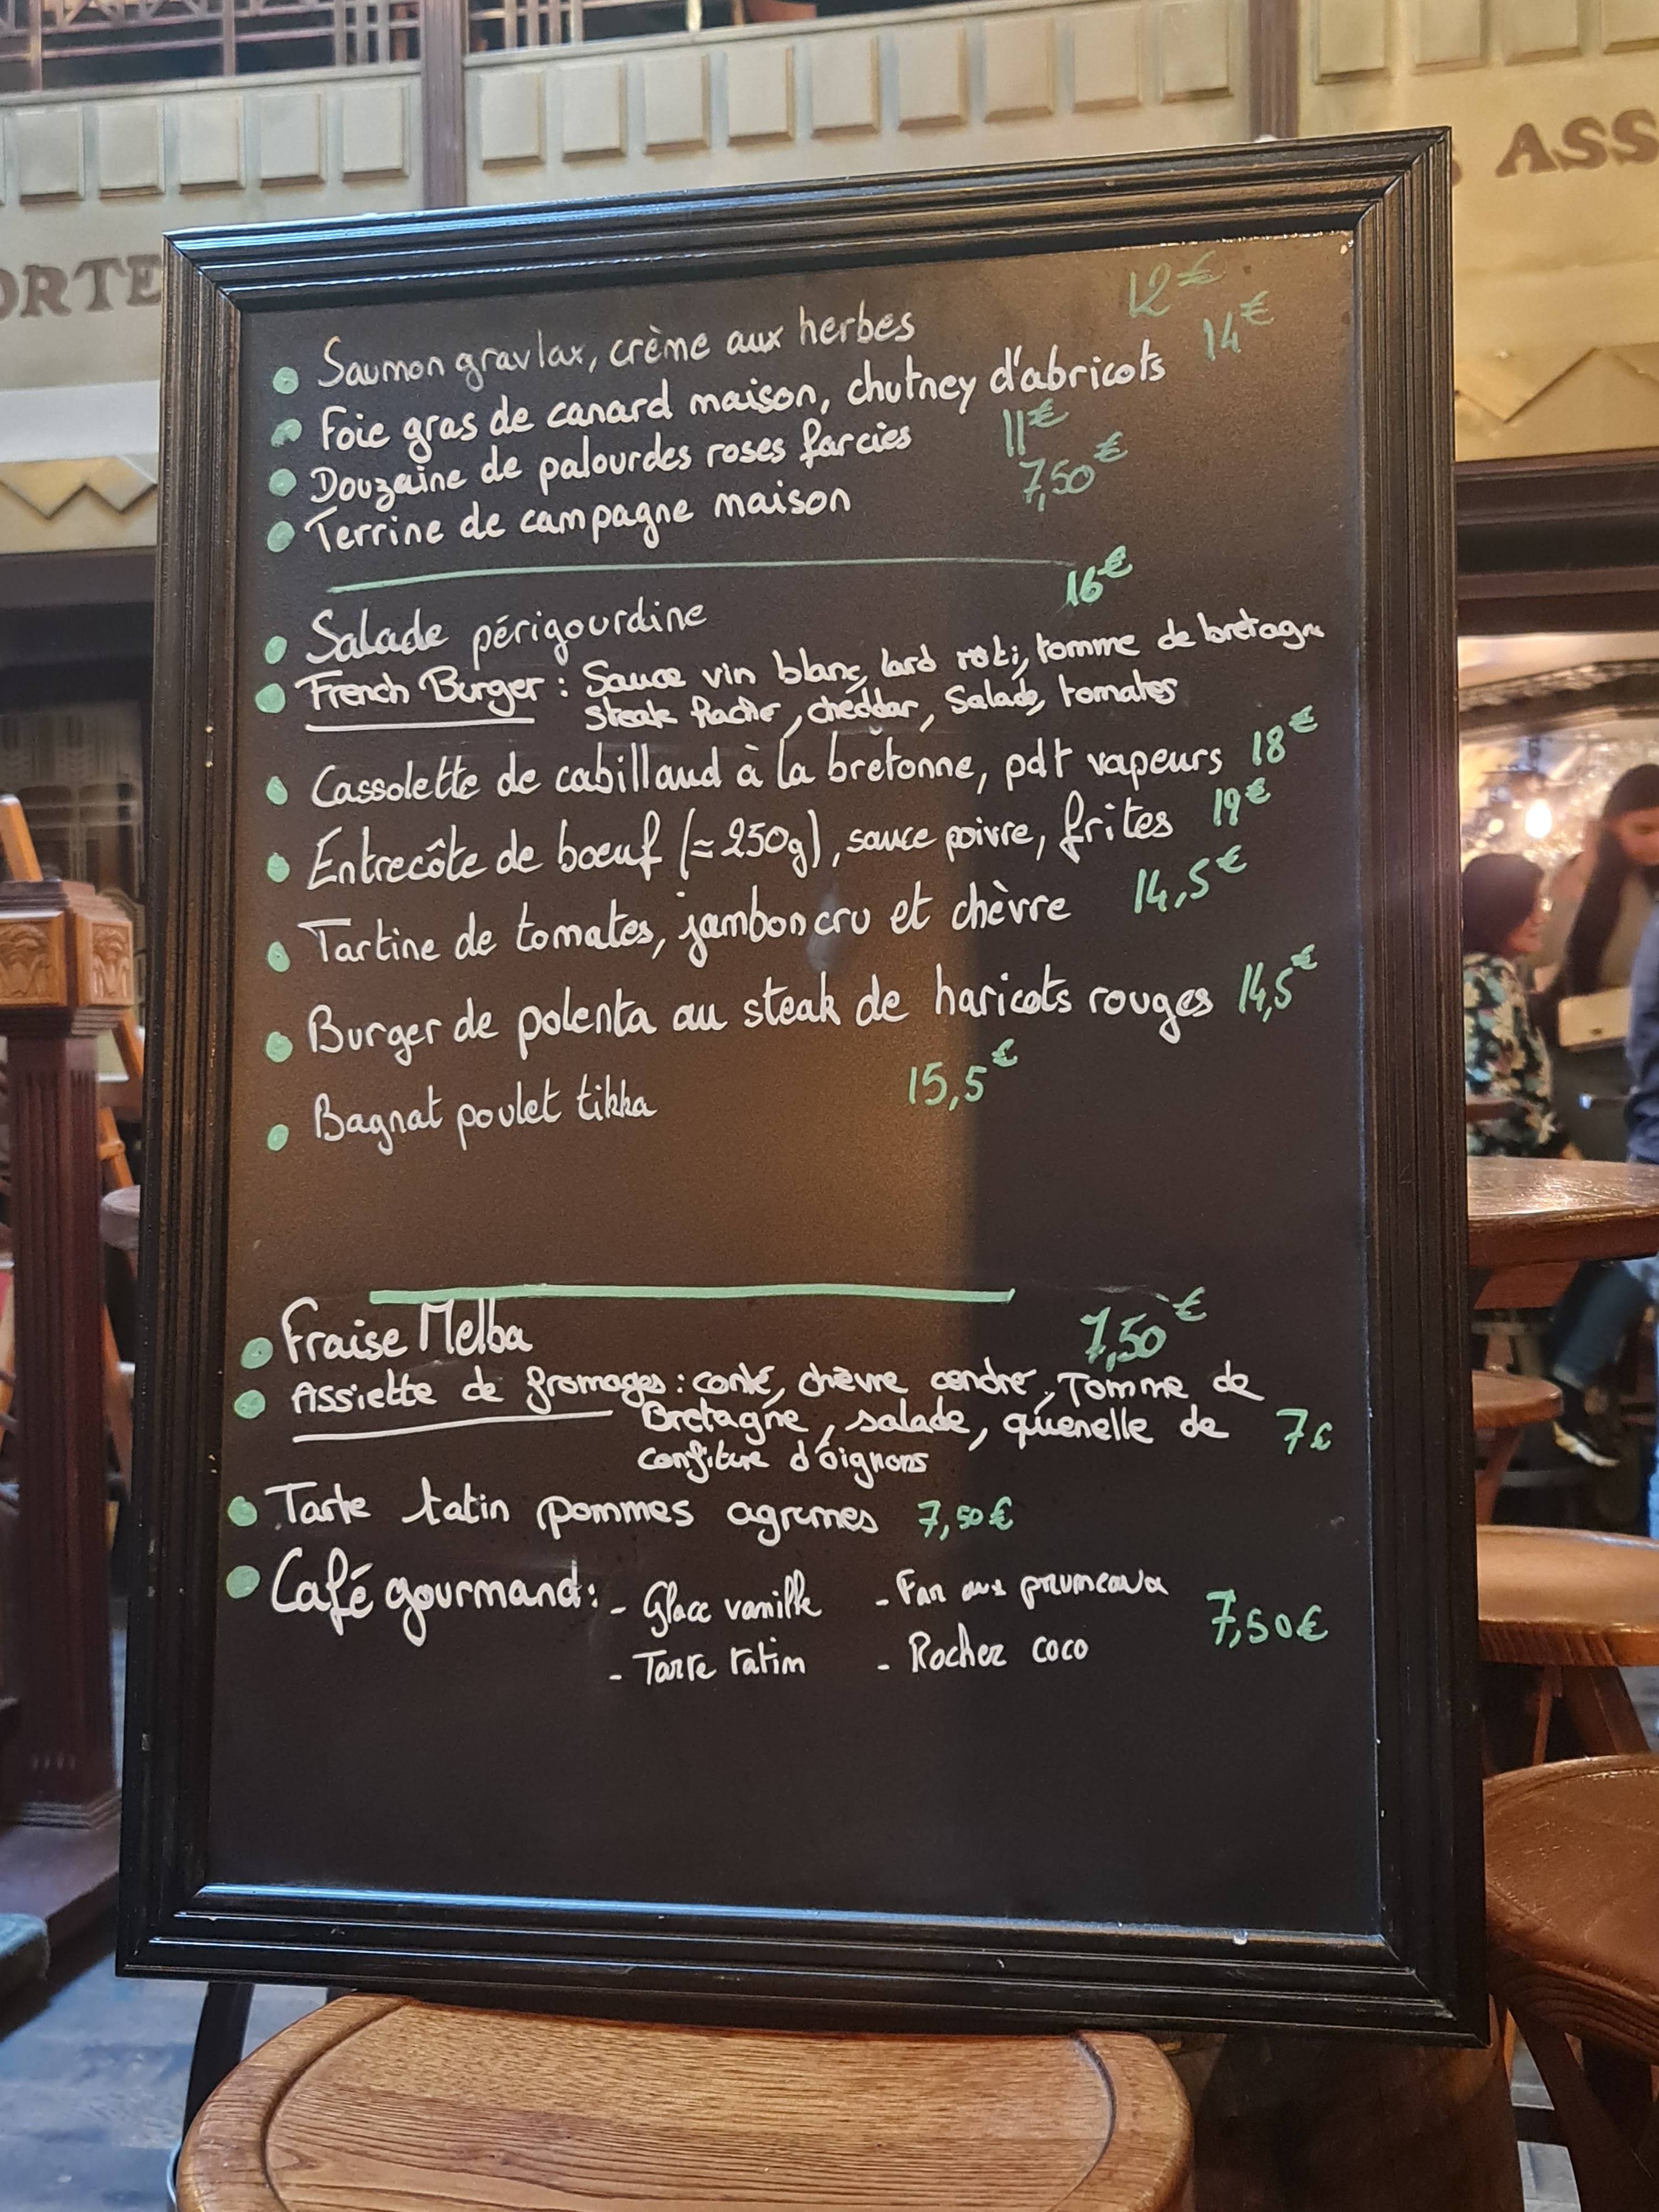 ORTE
ASS
Saumon gravlax, crème aux herbes 12€
Foie gras de canard maison, chutney d'abricots 14€
Douzaine de palourdes roses farcies 11€
Terrine de campagne maison 7,50€
Salade périgourdine 16€
French Burger : Sauce vin blanc, lard rôti, tomme de bretagne
Steak haché, cheddar, Salade, tomates
Cassolette de cabillaud à la bretonne, pdt vapeurs 18€
Entrecôte de boeuf (≈250g), sauce poivre, frites 19€
Tartine de tomates, jambon cru et chèvre 14,5€
Burger de polenta au steak de haricots rouges 14,5€
Bagnat poulet tikka 15,5€
Fraise Melba 7,50€
Assiette de fromages : comté, chèvre cendré, Tomme de
Bretagne, salade, quenelle de 7€
confiture d'oignons
Tarte tatin pommes agrumes 7,50€
Café gourmand : - Glace vanille - Far aux pruneaux 7,50€
- Tarte tatin - Rocher coco